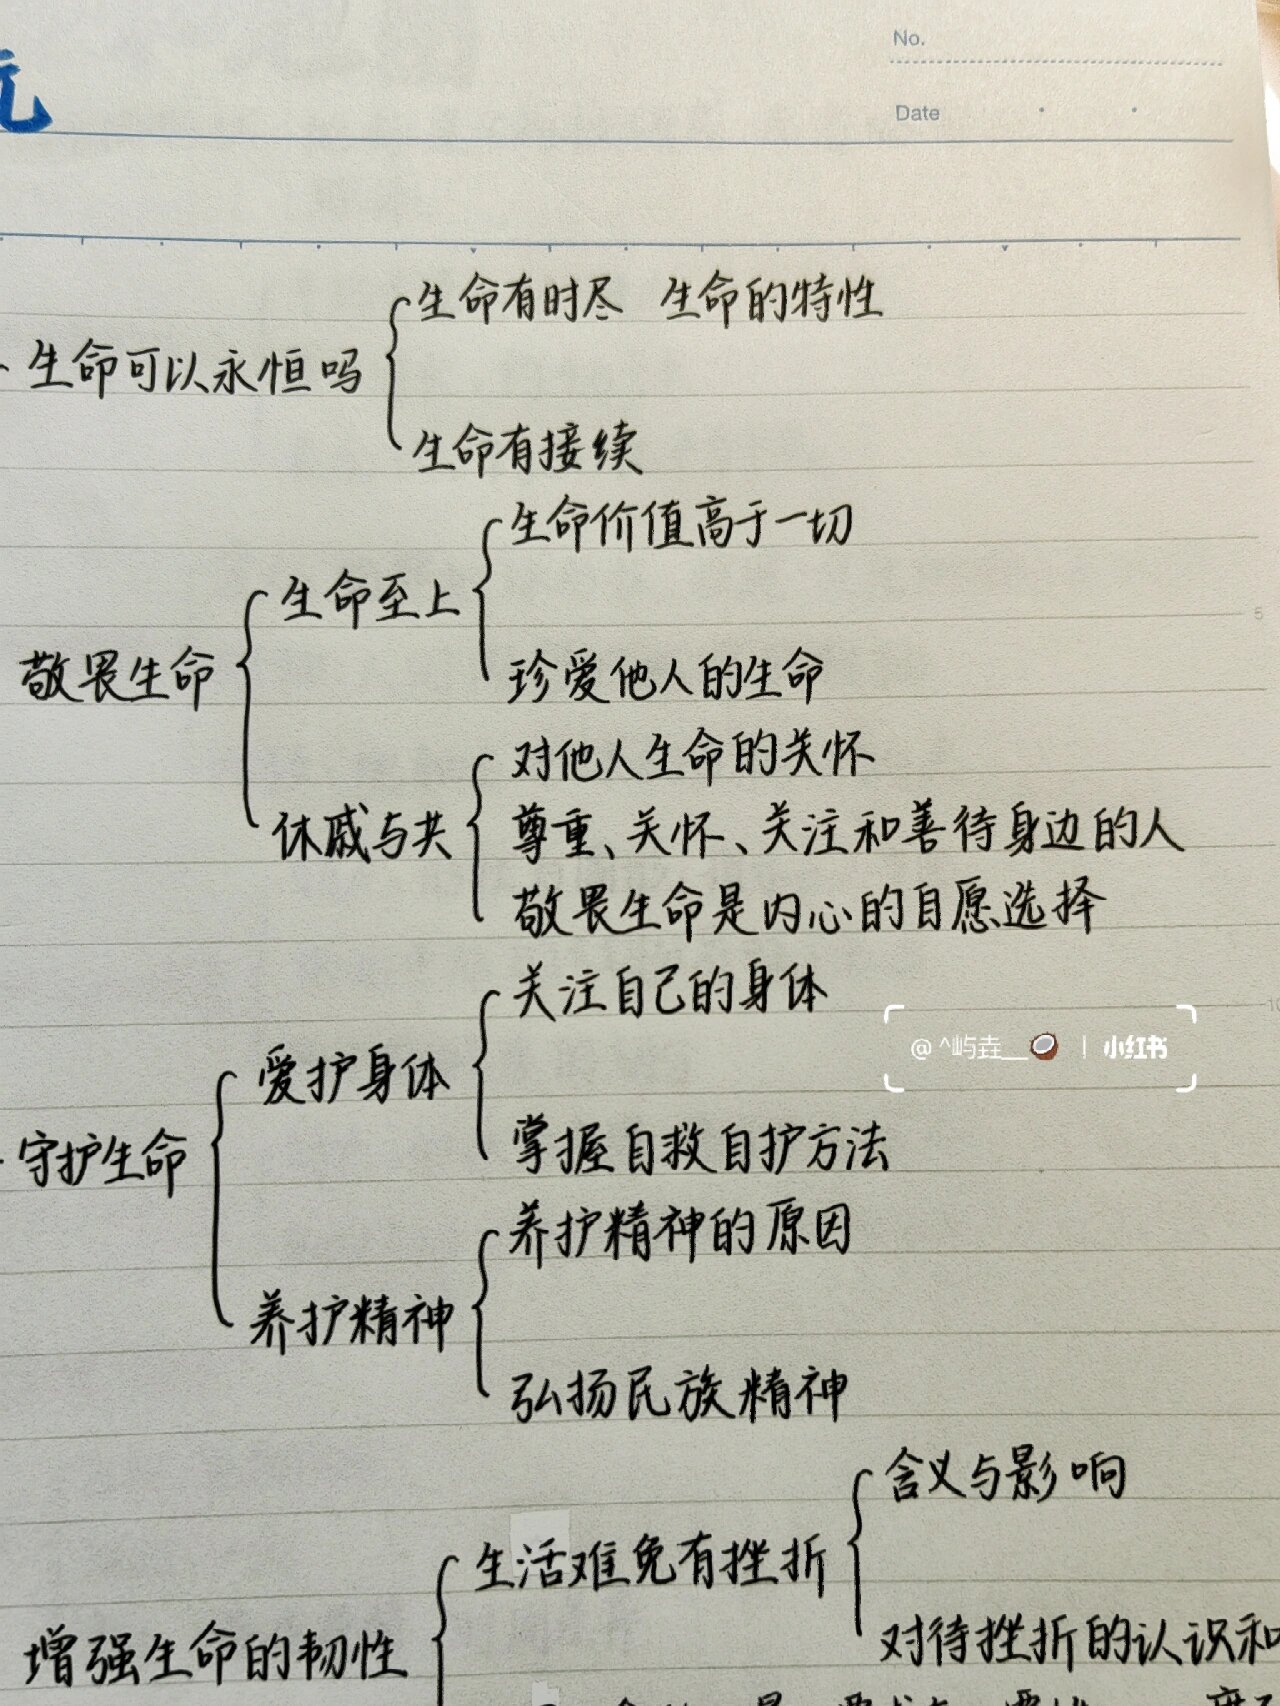 No.
Date
生命有时尽 生命的特性
生命可以永恒吗
生命有接续
生命价值高于一切
生命至上
敬畏生命
珍爱他人的生命
对他人生命的关怀
休戚与共
尊重、关怀、关注和善待身边的人
敬畏生命是内心的自愿选择
关注自己的身体
@^屿垚__🥥 | 小红书
爱护身体
守护生命
掌握自救自护方法
养护精神的原因
养护精神
弘扬民族精神
含义与影响
生活难免有挫折
增强生命的韧性
对待挫折的认识和
5
10